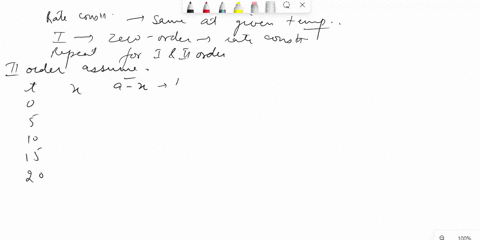 Rate const. → same at given temp..
I → zero-order → rate constt
Repeat for I & II order
II order assume.
t x a-x →
0
5
10
15
20
100%